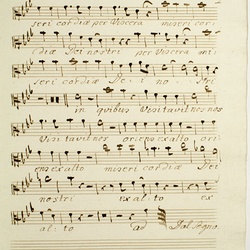 seri cordiæ per viscera miseri cori
diæ Dei nostri per viscera mi
seri cordiæ Dei no. Dei
in quibus visitavit nos nos
visitavit nos oriens ex alto ori
ens ex alto miseri cordiæ Dei
nostri ex alto ex
alto ad Dal Segno